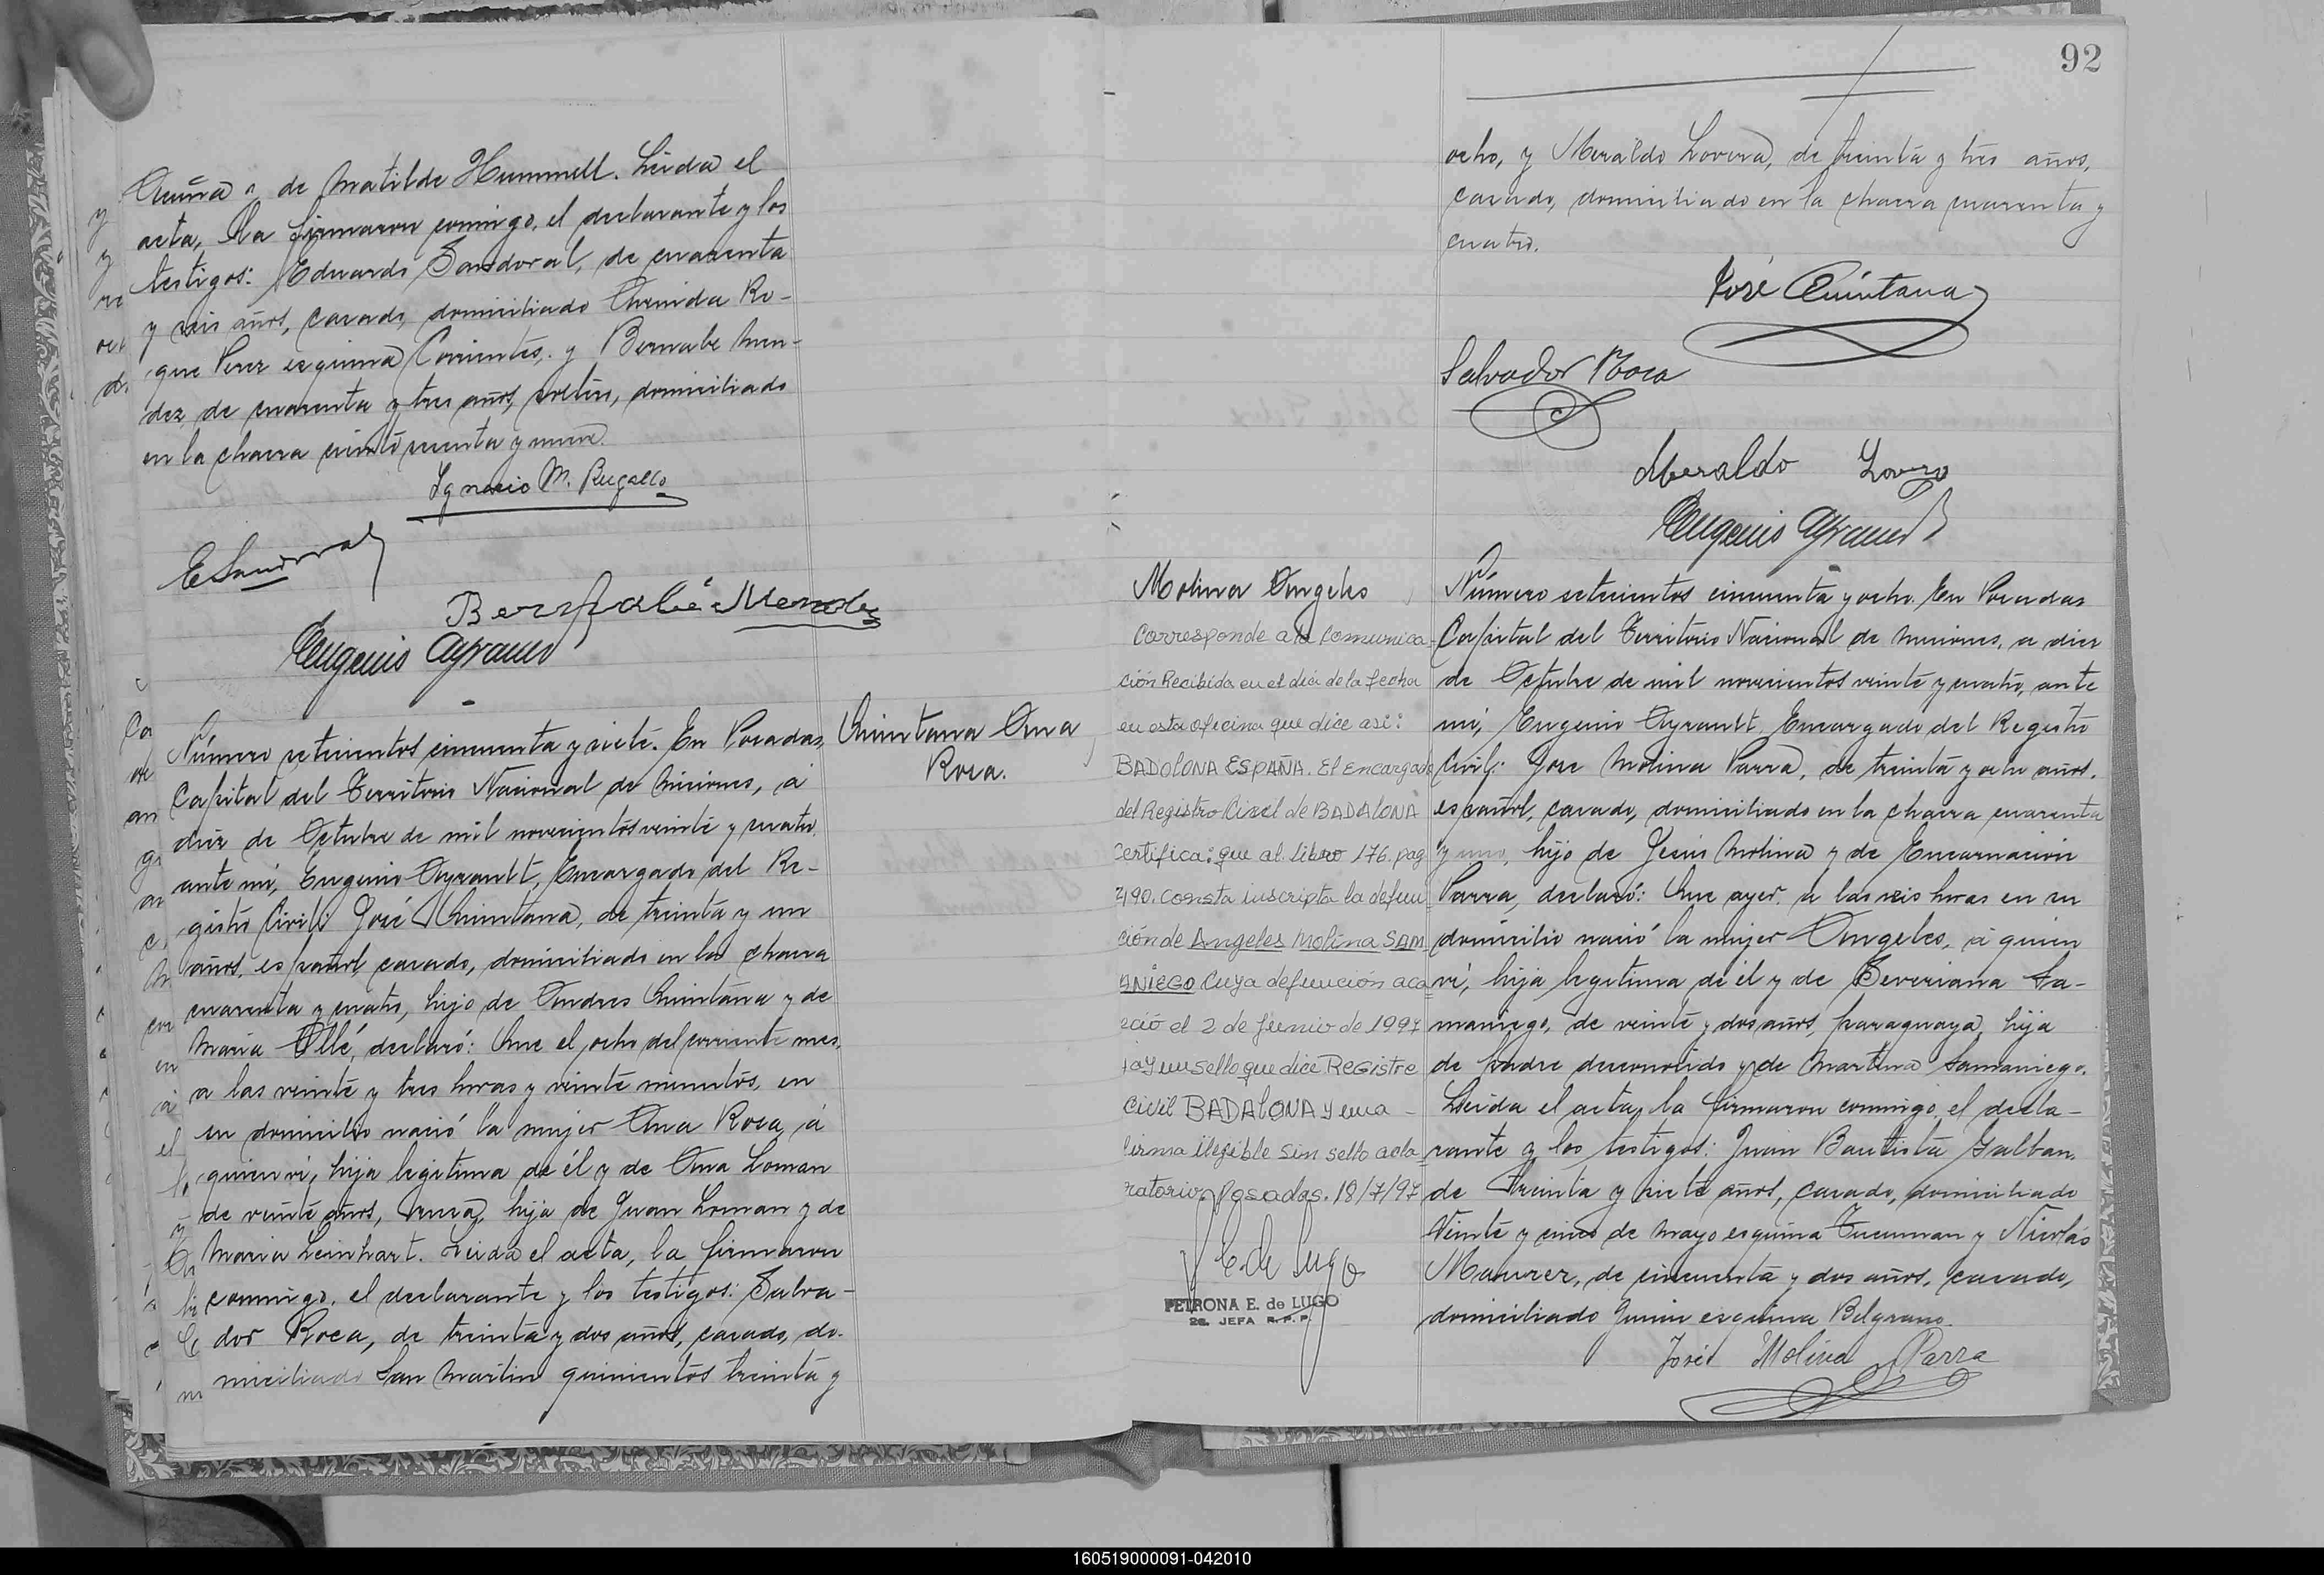 Acuña y de Matilde Hummell. Leida el
acta, la firmaron conmigo, el declarante y los
testigos: Eduardo Sandoval, de cuarenta
y seis años, casado, domiciliado Avenida Ro-
que Perez esquina Corrientes, y Bernabe Men-
dez, de cuarenta y tres años, soltero, domiciliado
en la chacra ciento cuenta y nueve.
Ignacio M. Rugallo
E Sandoval
Bernabé Mendez
Eugenio Ayrault
Quintana Ana
Rosa.
Número setecientos cincuenta y siete. En Posadas,
Capital del Territorio Nacional de Misiones, á
diez de Octubre de mil novecientos veinte y cuatro,
ante mi, Eugenio Ayrault, Encargado del Re-
gistro Civil: José Quintana, de treinta y un
años, español, casado, domiciliado en la chacra
cuarenta y cuatro, hijo de Andres Quintana y de
Maria Ollé, declaró: Que el ocho del corriente mes,
a las veinte y tres horas y veinte minutos, en
su domicilio nació la mujer Ana Rosa, á
quien ví, hija legitima de él y de Ana Loman
de veinte años, rusa, hija de Juan Loman y de
Maria Leinhart. Leida el acta, la firmaron
conmigo, el declarante y los testigos: Salva-
dor Roca, de treinta y dos años, casado, do-
miciliado San Martin quinientos treinta y
92
ocho, y Meraldo Lovera, de treinta y tres años,
casado, domiciliado en la chacra cuarenta y
cuatro.
José Quintana
Salvador Roca
Meraldo Lovera
Eugenio Ayrault
Molina Angeles
Corresponde a la comunica-
ción Recibida en el dia de la fecha
en esta oficina que dice asi:
BADOLONA ESPAÑA. El Encargado
del Registro Civil de BADALONA
Certifica: que al libro 176. pag
490. consta inscripta la defun-
ción de Angeles Molina SAM
ANIEGO cuya defunción aca
eció el 2 de Junio de 1997
Hay un sello que dice Registre
Civil BADALONA y una -
firma ilegible sin sello acla
ratorio. Posadas. 18/7/97
E. de Lugo
PETRONA E. de LUGO
2a. JEFA R.P.P.
Número setecientos cincuenta y ocho. En Posadas
Capital del Territorio Nacional de Misiones, a diez
de Octubre de mil novecientos veinte y cuatro, ante
mi, Eugenio Ayrault, Encargado del Registro
Civil: Jose Molina Parra, de treinta y ocho años,
español, casado, domiciliado en la chacra cuarenta
y uno, hijo de Jesús Molina y de Encarnación
Parra, declaró: Que ayer, a las seis horas en su
domicilio nació la mujer Angeles, á quien
ví, hija legitima de él y de Severiana Sa-
maniego, de veinte y dos años, paraguaya, hija
de padre desconocido y de Martina Samaniego.
Leida el acta, la firmaron conmigo, el decla-
rante y los testigos: Juan Bautista Galban,
de treinta y siete años, casado, domiciliado
Veinte y cinco de Mayo esquina Tucuman y Nicolás
Maurer, de cincuenta y dos años, casado,
domiciliado Junin esquina Belgrano.
José Molina Parra
160519000091-042010